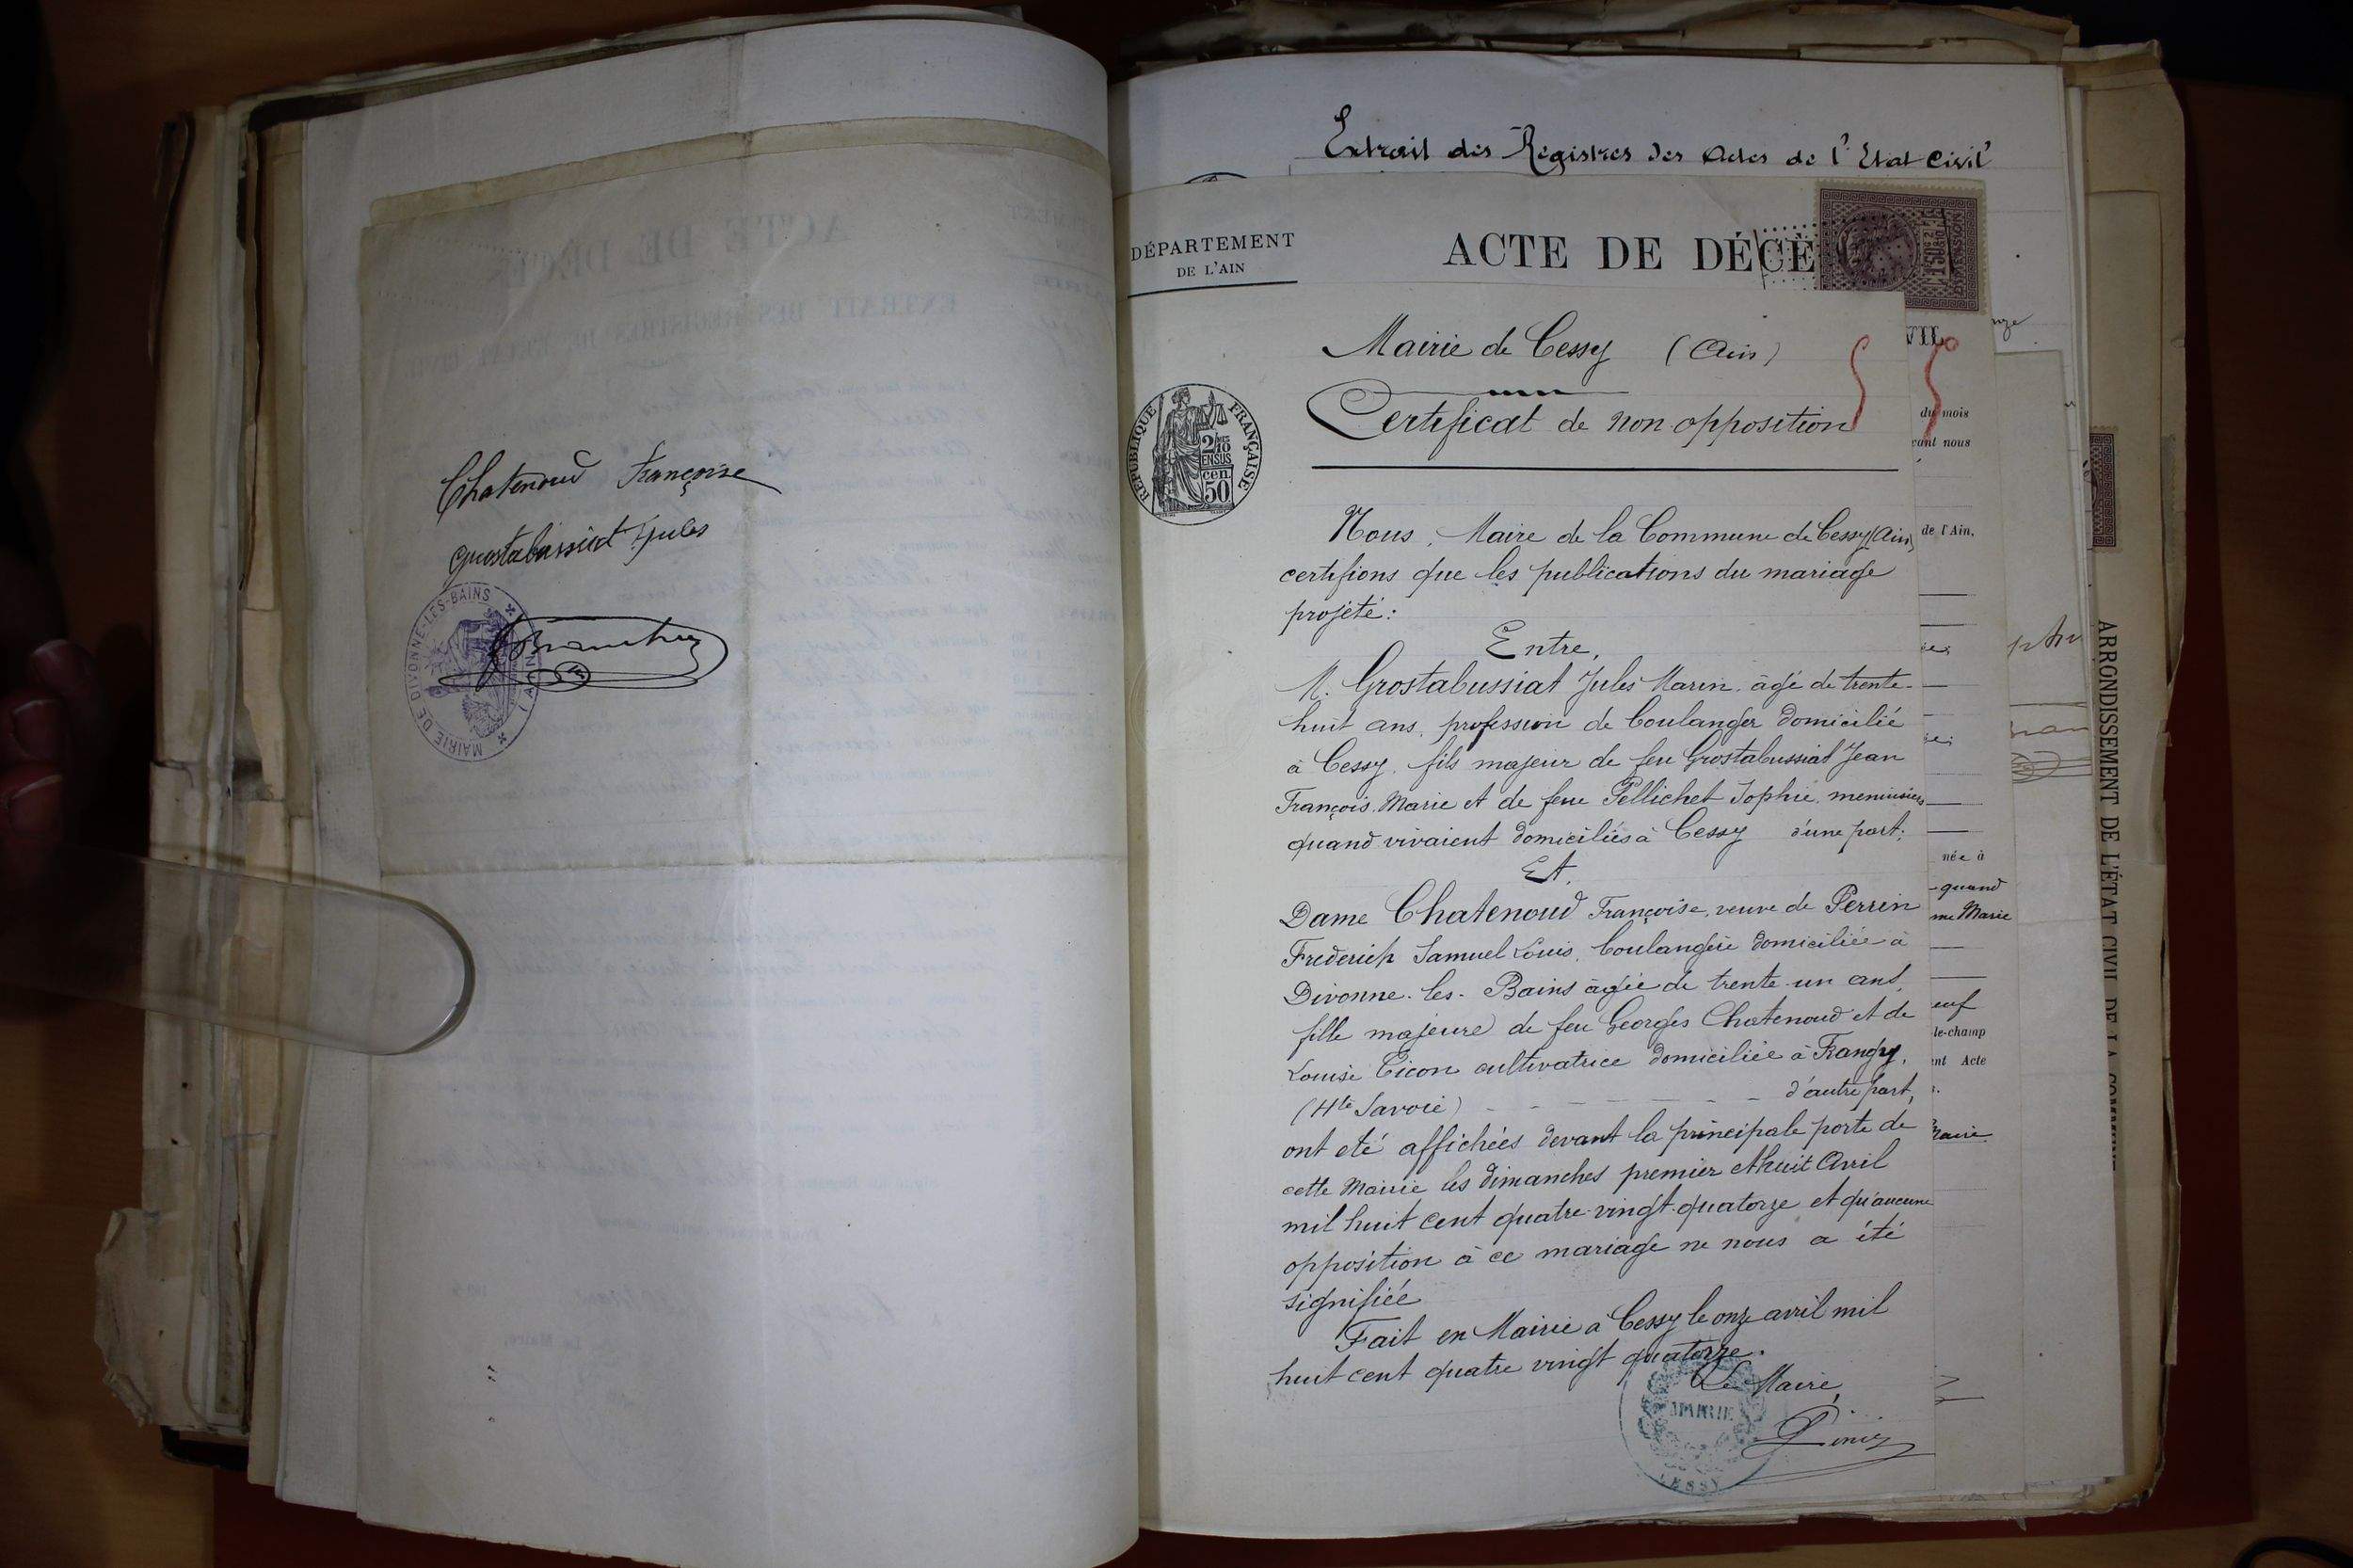 Chatenoud Françoise
Grostabussiat Jules
MAIRIE DE DIVONNE-LES-BAINS
(AIN)
Extrait des Registres des Actes de l'Etat Civil
DÉPARTEMENT
DE L'AIN
ACTE DE DÉCÈ
Mairie de Cessy (Ain)
Certificat de non opposition
RÉPUBLIQUE FRANÇAISE
2/10
EN SUS
cen
50
du mois
nous
de l'Ain.
Nous, Maire de la Commune de Cessy (Ain)
certifions que les publications du mariage
projeté :
Entre,
M. Grostabussiat Jules Marin, âgé de trente-
huit ans, profession de boulanger domicilié
à Cessy, fils majeur de feu Grostabussiat Jean
François Marie et de feue Pellichet Sophie, menuisiers
quand vivaient domiciliés à Cessy d'une part;
Et,
Dame Chatenoud Françoise, veuve de Perrin
Frederick Samuel Louis, boulangère domiciliée à
Divonne-les-Bains âgée de trente-un ans,
fille majeure de feu Georges Chatenoud et de
Louise Cicon cultivatrice domiciliée à Frangy,
(Hte Savoie) d'autre part,
ont eté affichées devant la principale porte de
cette Mairie les dimanches premier et huit Avril
mil huit cent quatre-vingt-quatorze et qu'aucune
opposition à ce mariage ne nous a été
signifiée
Fait en Mairie à Cessy le onze avril mil
huit cent quatre vingt quatorze.
Le Maire,
MAIRIE
CESSY
née à
quand
me Marie
le-champ
Acte
ARRONDISSEMENT DE L'ÉTAT CIVIL DE LA COMMUNE